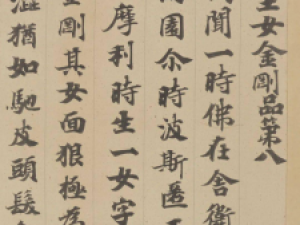 王女金剛品第八
聞一時佛在舍衛
園尒時波斯匿
摩利時生一女字
金剛其女面狠極為
猶如馳皮頭髮